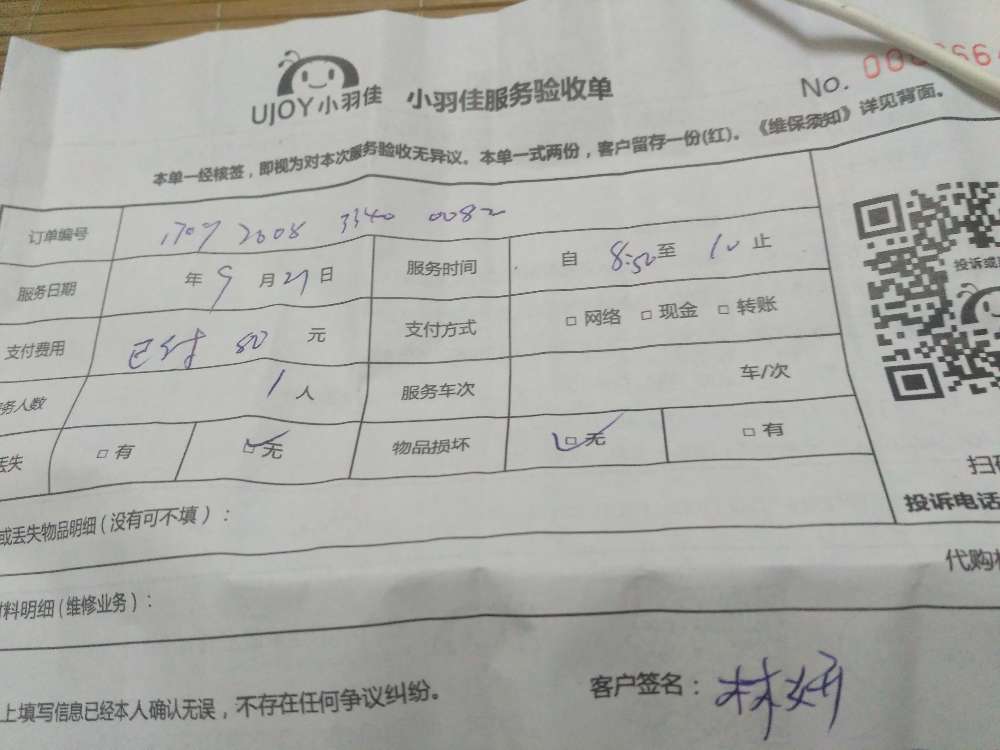 UJOY小羽佳 小羽佳服务验收单 No.
本单一经核签，即视为对本次服务验收无异议。本单一式两份，客户留存一份(红)。《维保须知》详见背面。
订单编号 1709 2008 3340 0082
服务日期 年 9 月 21 日 服务时间 自 8:50 至 10 止
支付费用 已付 80 元 支付方式 □ 网络 □ 现金 □ 转账
务人数 1 人 服务车次 车/次
丢失 □ 有 □ 无 物品损坏 □ 无 □ 有
或丢失物品明细(没有可不填)：
投诉电话
代购
料明细(维修业务)：
上填写信息已经本人确认无误，不存在任何争议纠纷。 客户签名：林妍